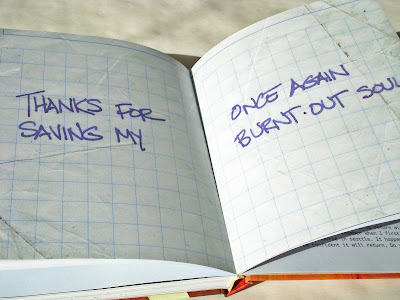 THANKS FOR
SAVING MY
ONCE AGAIN
BURNT·OUT SOUL
when I first
in seattle. It
it will return. So